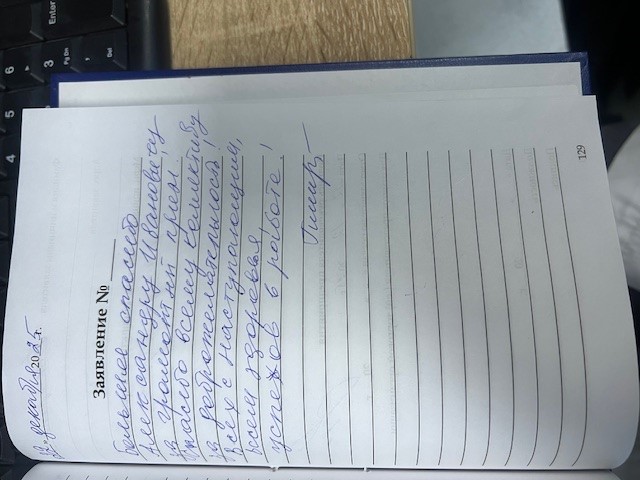 23 декабря 2025 г.
Заявление № ____
Большое спасибо
Александру Ивановичу
за грамотный прием
Спасибо всему коллективу
за доброжелательность!
Всех с наступающим,
всем здоровья!
успехов в работе!
129
Enter
6
3
Pg Dn
Del
5
4